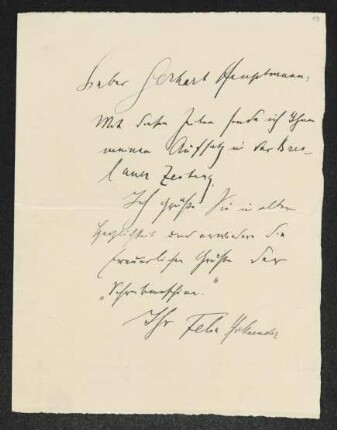 Lieber Gerhart Hauptmann,
Mit diesen Zeilen sende ich Ihnen
meinen Aufsatz in der Bres-
lauer Zeitung.
Ich grüße Sie in alter
Herzlichkeit und erwidere die
freundlichen Grüße der
„Schreibmaschine."
Ihr Felix Hollaender